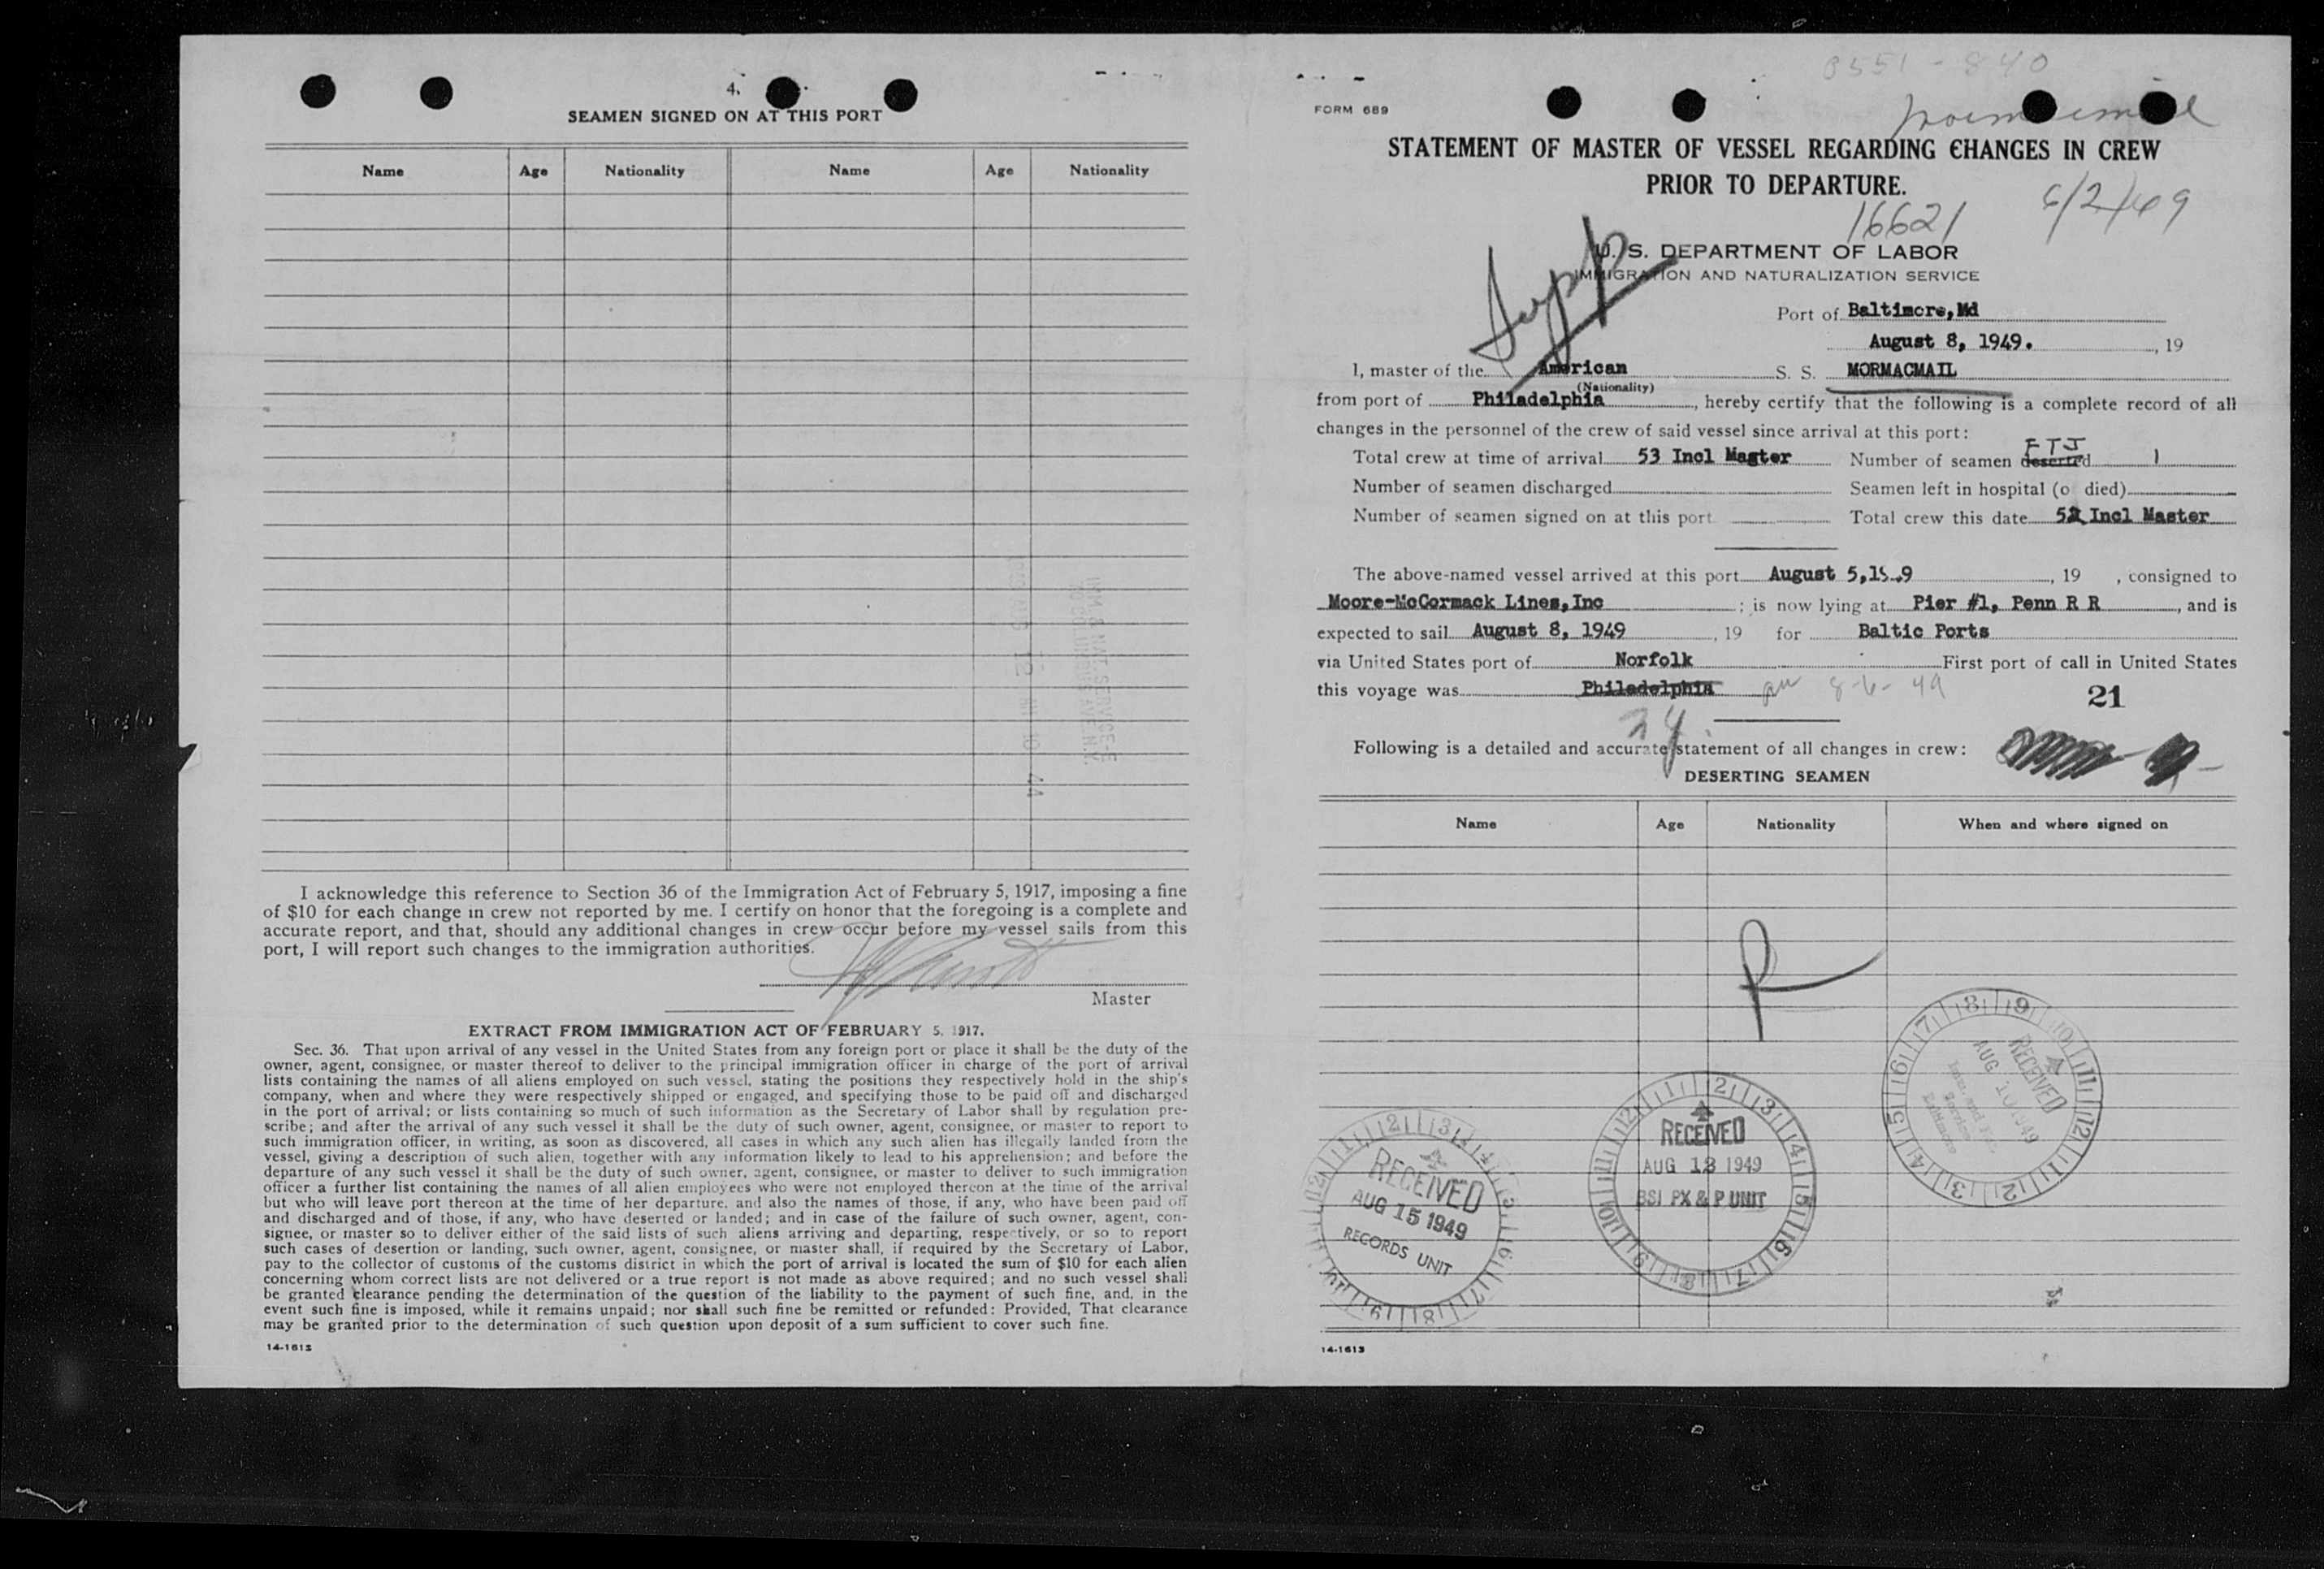 4.
SEAMEN SIGNED ON AT THIS PORT
Name Age Nationality Name Age Nationality
I acknowledge this reference to Section 36 of the Immigration Act of February 5, 1917, imposing a fine
of $10 for each change in crew not reported by me. I certify on honor that the foregoing is a complete and
accurate report, and that, should any additional changes in crew occur before my vessel sails from this
port, I will report such changes to the immigration authorities.
Master
EXTRACT FROM IMMIGRATION ACT OF FEBRUARY 5, 1917.
Sec. 36. That upon arrival of any vessel in the United States from any foreign port or place it shall be the duty of the
owner, agent, consignee, or master thereof to deliver to the principal immigration officer in charge of the port of arrival
lists containing the names of all aliens employed on such vessel, stating the positions they respectively hold in the ship's
company, when and where they were respectively shipped or engaged, and specifying those to be paid off and discharged
in the port of arrival; or lists containing so much of such information as the Secretary of Labor shall by regulation pre-
scribe; and after the arrival of any such vessel it shall be the duty of such owner, agent, consignee, or master to report to
such immigration officer, in writing, as soon as discovered, all cases in which any such alien has illegally landed from the
vessel, giving a description of such alien, together with any information likely to lead to his apprehension; and before the
departure of any such vessel it shall be the duty of such owner, agent, consignee, or master to deliver to such immigration
officer a further list containing the names of all alien employees who were not employed thereon at the time of the arrival
but who will leave port thereon at the time of her departure, and also the names of those, if any, who have been paid off
and discharged and of those, if any, who have deserted or landed; and in case of the failure of such owner, agent, con-
signee, or master so to deliver either of the said lists of such aliens arriving and departing, respectively, or so to report
such cases of desertion or landing, such owner, agent, consignee, or master shall, if required by the Secretary of Labor,
pay to the collector of customs of the customs district in which the port of arrival is located the sum of $10 for each alien
concerning whom correct lists are not delivered or a true report is not made as above required; and no such vessel shall
be granted clearance pending the determination of the question of the liability to the payment of such fine, and, in the
event such fine is imposed, while it remains unpaid; nor shall such fine be remitted or refunded: Provided, That clearance
may be granted prior to the determination of such question upon deposit of a sum sufficient to cover such fine.
14-1613
0551-840
FORM 689
STATEMENT OF MASTER OF VESSEL REGARDING CHANGES IN CREW
PRIOR TO DEPARTURE.
16621
U. S. DEPARTMENT OF LABOR
IMMIGRATION AND NATURALIZATION SERVICE
Supp
Port of Baltimore,Md
August 8, 1949. , 19
I, master of the American S. S. MORMACMAIL
(Nationality)
from port of Philadelphia , hereby certify that the following is a complete record of all
changes in the personnel of the crew of said vessel since arrival at this port:
FTJ
Total crew at time of arrival 53 Incl Master Number of seamen deserted 1
Number of seamen discharged Seamen left in hospital (o died)
Number of seamen signed on at this port Total crew this date 52 Incl Master
The above-named vessel arrived at this port August 5,19.9 , 19 , consigned to
Moore-McCormack Lines,Inc ; is now lying at Pier #1, Penn R R , and is
expected to sail August 8, 1949 , 19 for Baltic Ports
via United States port of Norfolk First port of call in United States
this voyage was Philadelphia 8-6-49
21
Following is a detailed and accurate statement of all changes in crew:
DESERTING SEAMEN
Name Age Nationality When and where signed on
RECEIVED
AUG 10 1949
RECEIVED
AUG 13 1949
BSI PX & P UNIT
RECEIVED
AUG 15 1949
RECORDS UNIT
14-1613